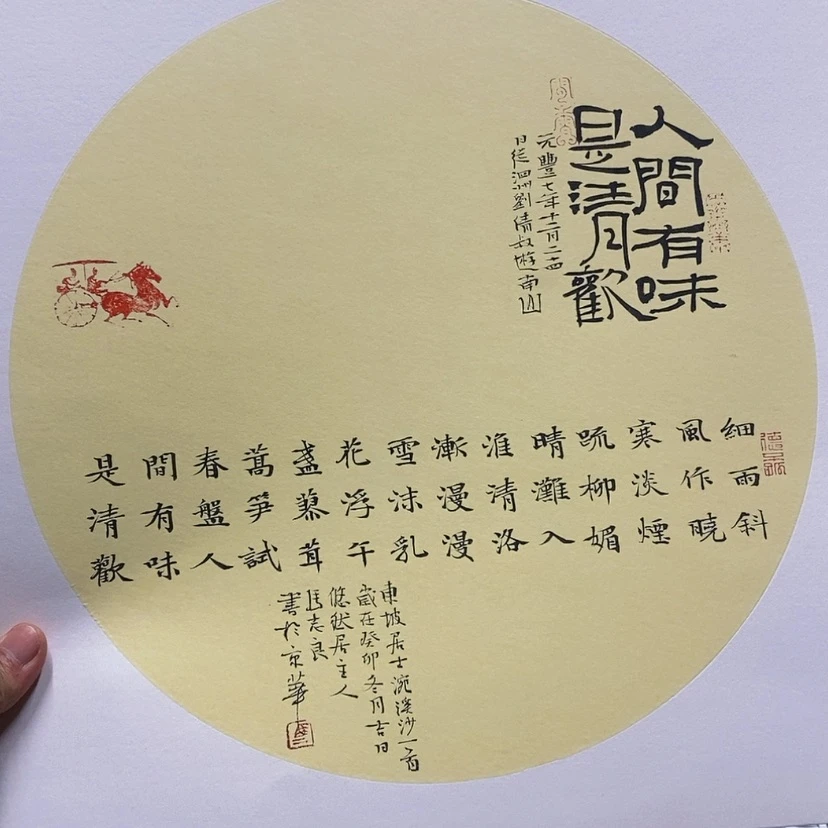 人間有味
是清歡
元豐七年十二月二十四
日從泗洲劉倩叔遊南山
細雨斜
風作曉
寒淡煙
疏柳媚
晴灘入
淮清洛
漸漫漫
雪沫乳
花浮午
盞蓼茸
蒿笋試
春盤人
間有味
是清歡
東坡居士浣溪沙一首
歲在癸卯冬月吉日
悠然居主人
馬志良
書於京華